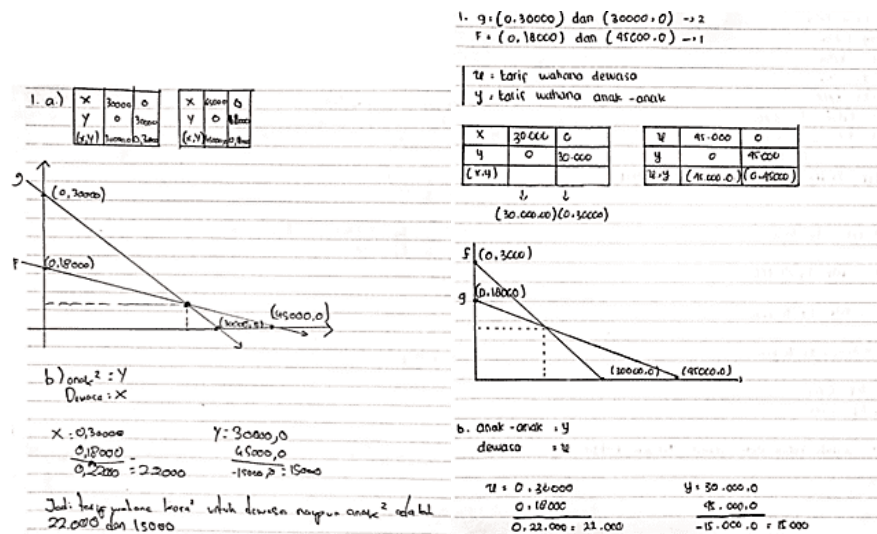 1. a.)
X 30000 0
Y 0 30000
(x,y)
X 45000 0
Y 0 18000
(x,y)
g
(0,30000)
F
(0,18000)
(30000,0)
(45000,0)
b) anak² : Y
Dewasa : X
X : 0,30000
0,18000
0,22000 = 22000
Y : 30000,0
45000,0
-15000,0 = 15000
Jadi tarif wahana kora² untuk dewasa maupun anak² adalah
22.000 dan 15000
1. g = (0,30000) dan (30000,0) → 2
F = (0,18000) dan (45000,0) → 1
x = tarif wahana dewasa
y = tarif wahana anak-anak
X 30.000 0
y 0 30.000
(x,y)
x 45.000 0
y 0 45.000
x,y (45.000.0) (0.45000)
(30.000.00) (0.30000)
f (0,3000)
g (0,18000)
(30000.0) (45000.0)
b. anak-anak : y
dewasa = x
x = 0,30000
0,18000
0,22.000 = 22.000
y = 30.000,0
45.000,0
-15.000.0 = 15000